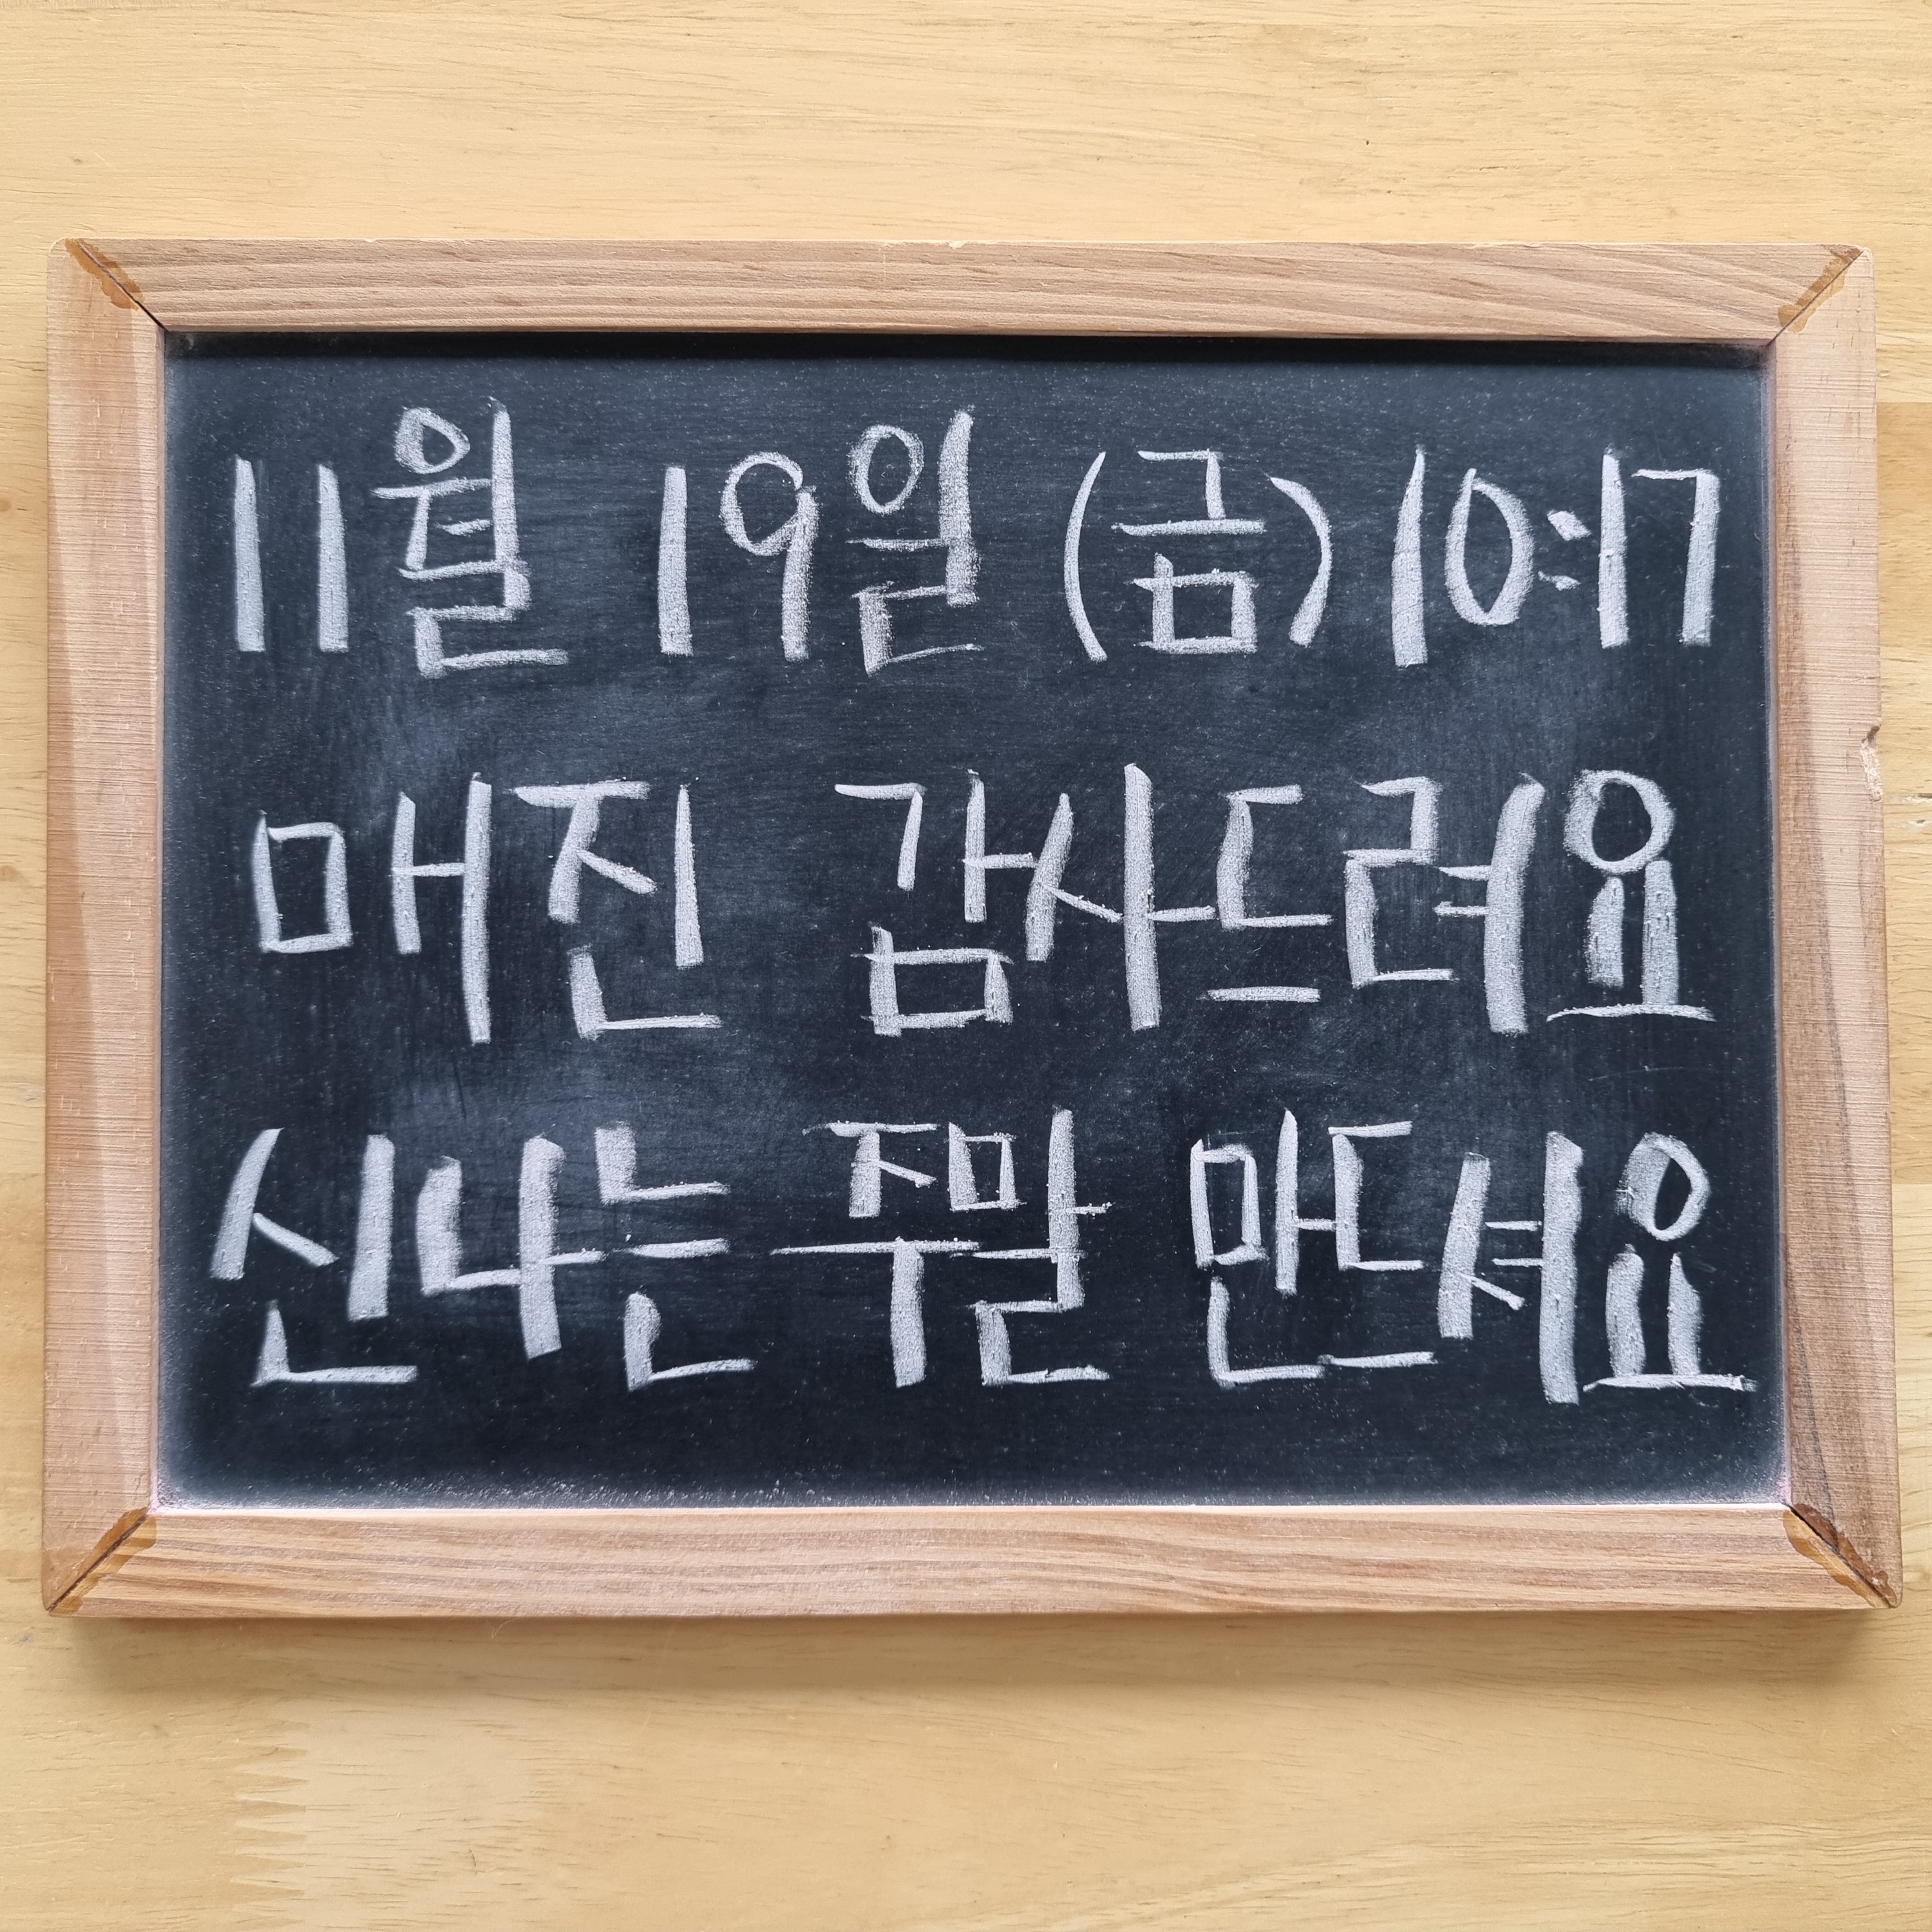 11월 19일 (금) 10:17
매진 감사드려요
신나는 주말 만드셔요